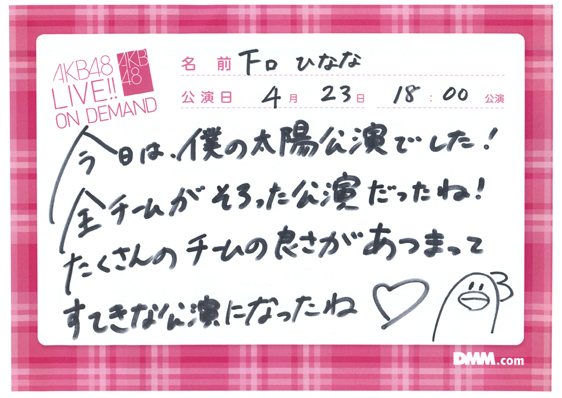 AKB48
LIVE!!
ON DEMAND
AKB
48
名 前 下口 ひなな
公演日 4月 23日 18:00 公演
今日は、僕の太陽公演でした!
全チームがそろった公演だったね!
たくさんのチームの良さがあつまって
すてきな公演になったね♡
DMM.com